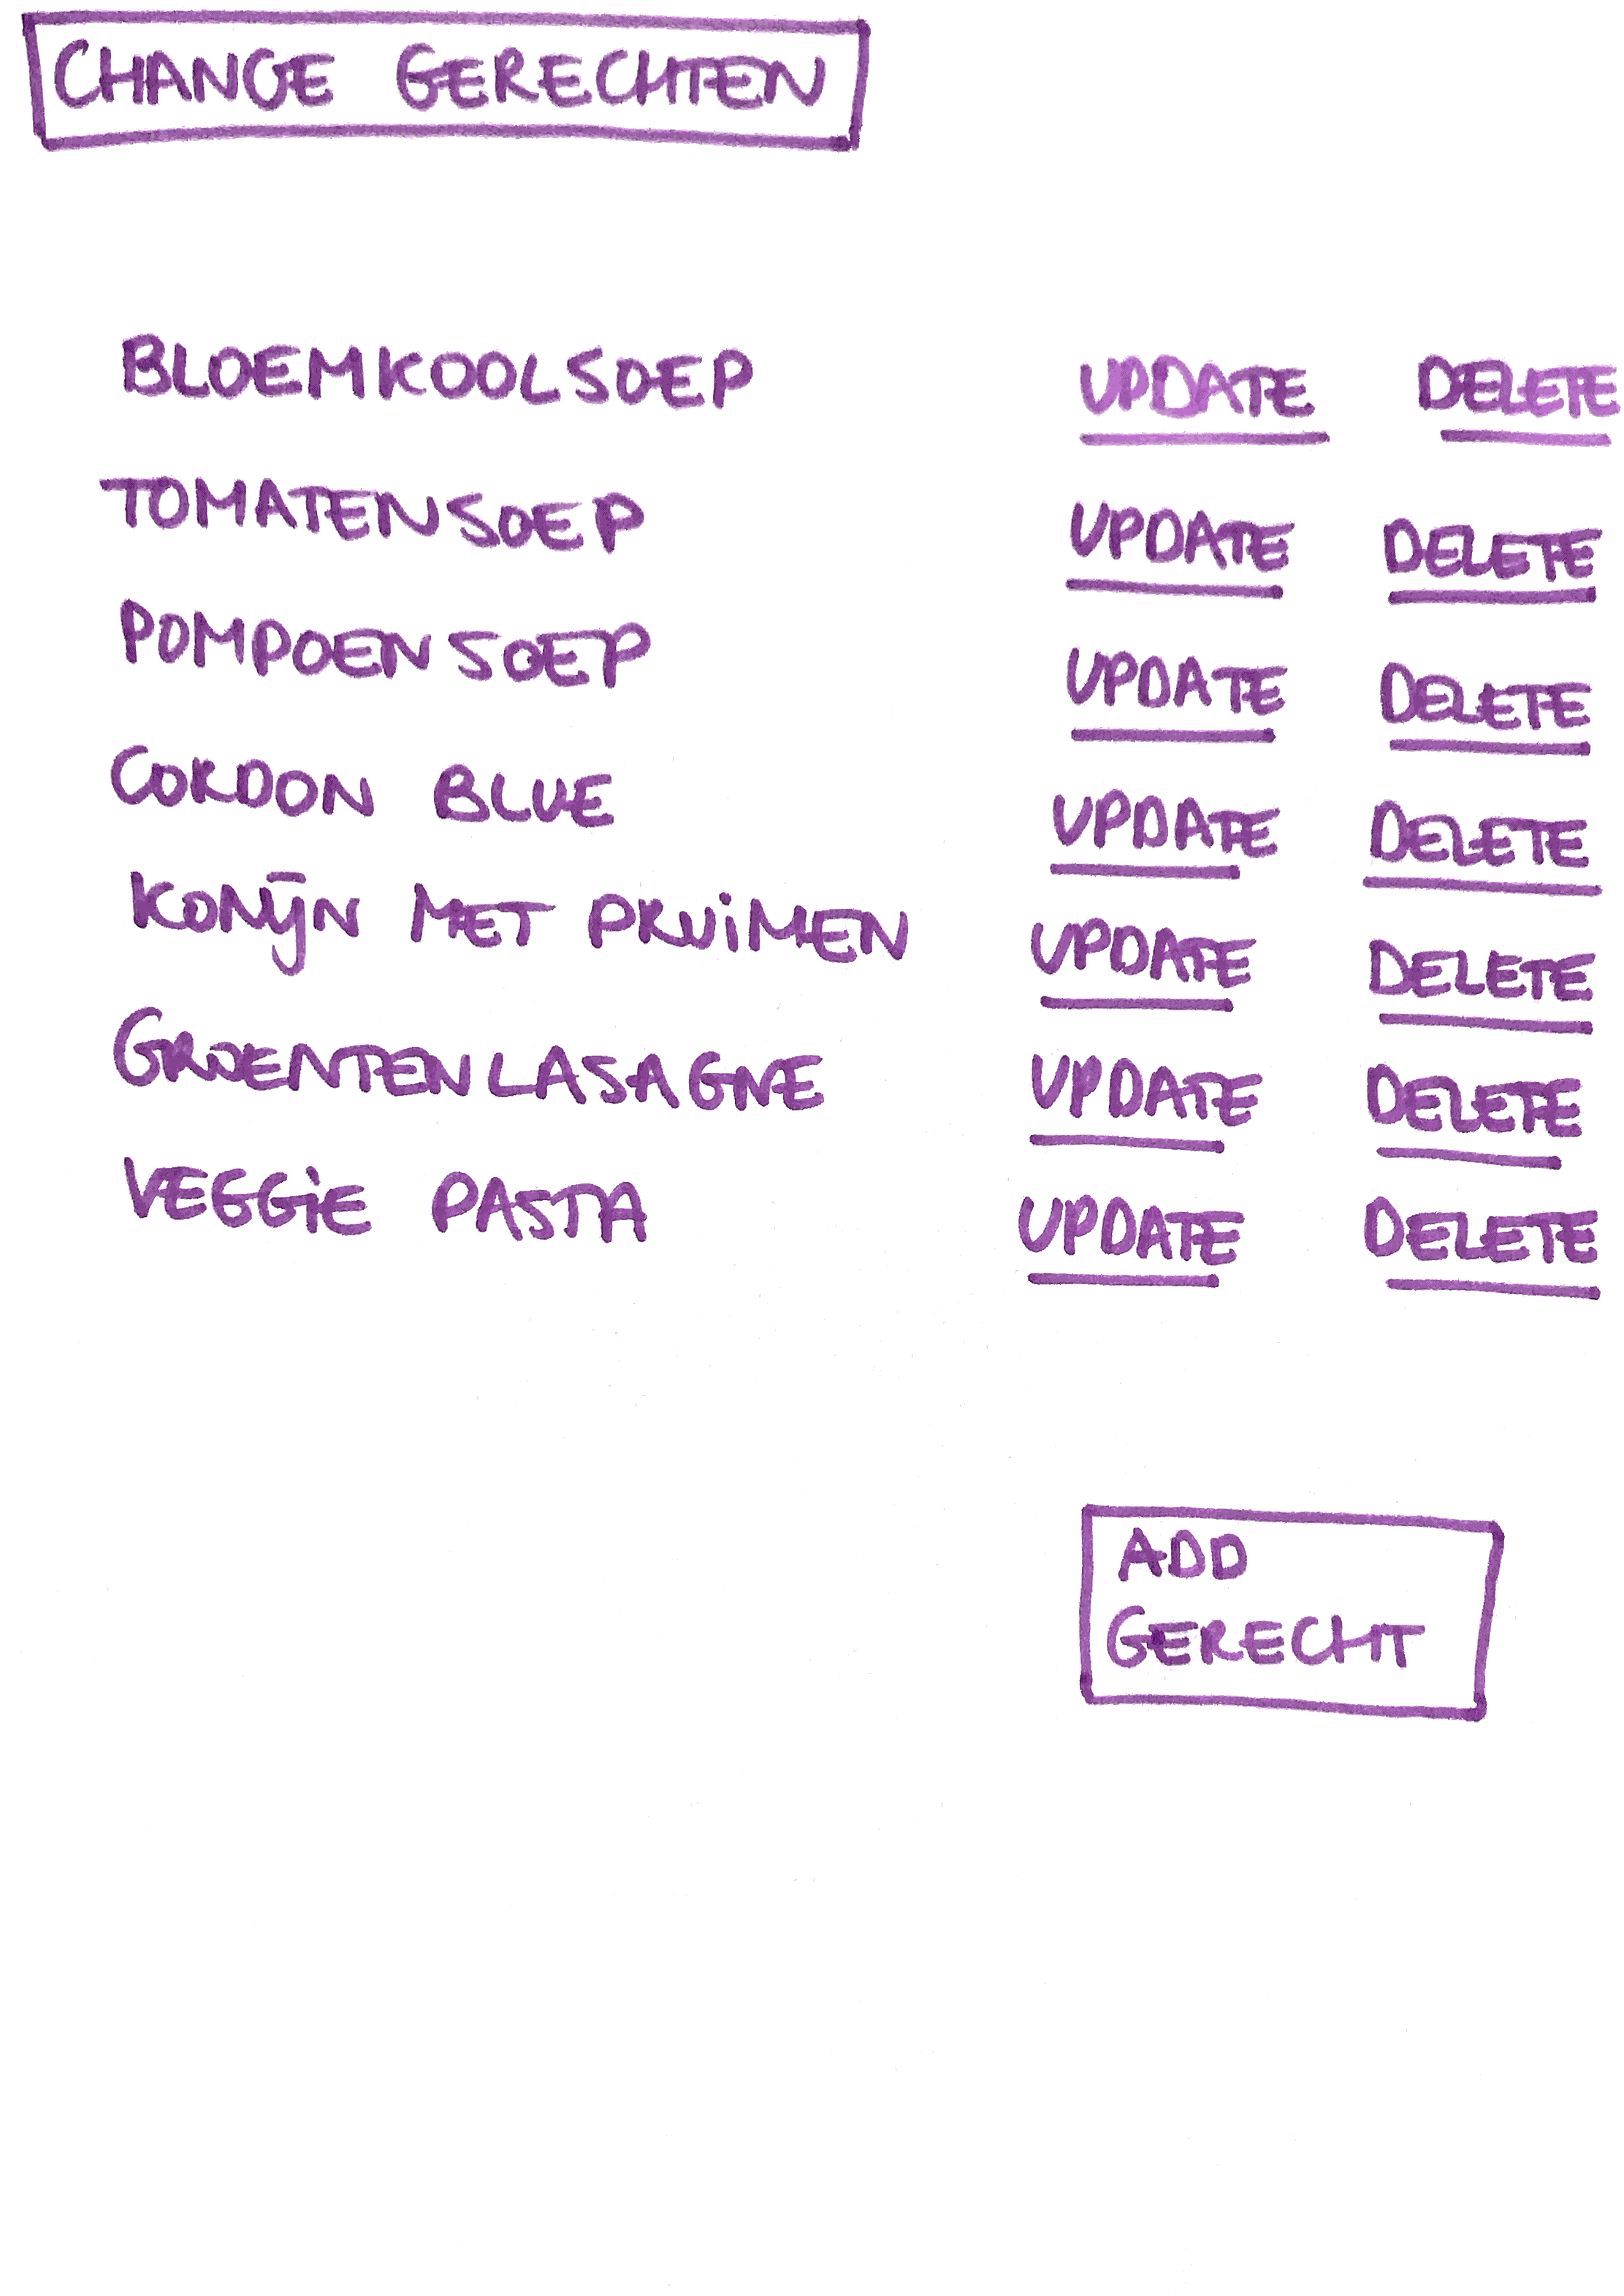 CHANGE GERECHTEN
BLOEMKOOLSOEP UPDATE DELETE
TOMATENSOEP UPDATE DELETE
POMPOENSOEP UPDATE DELETE
CORDON BLUE UPDATE DELETE
KONIJN MET PRUIMEN UPDATE DELETE
GROENTENLASAGNE UPDATE DELETE
VEGGIE PASTA UPDATE DELETE
ADD
GERECHT